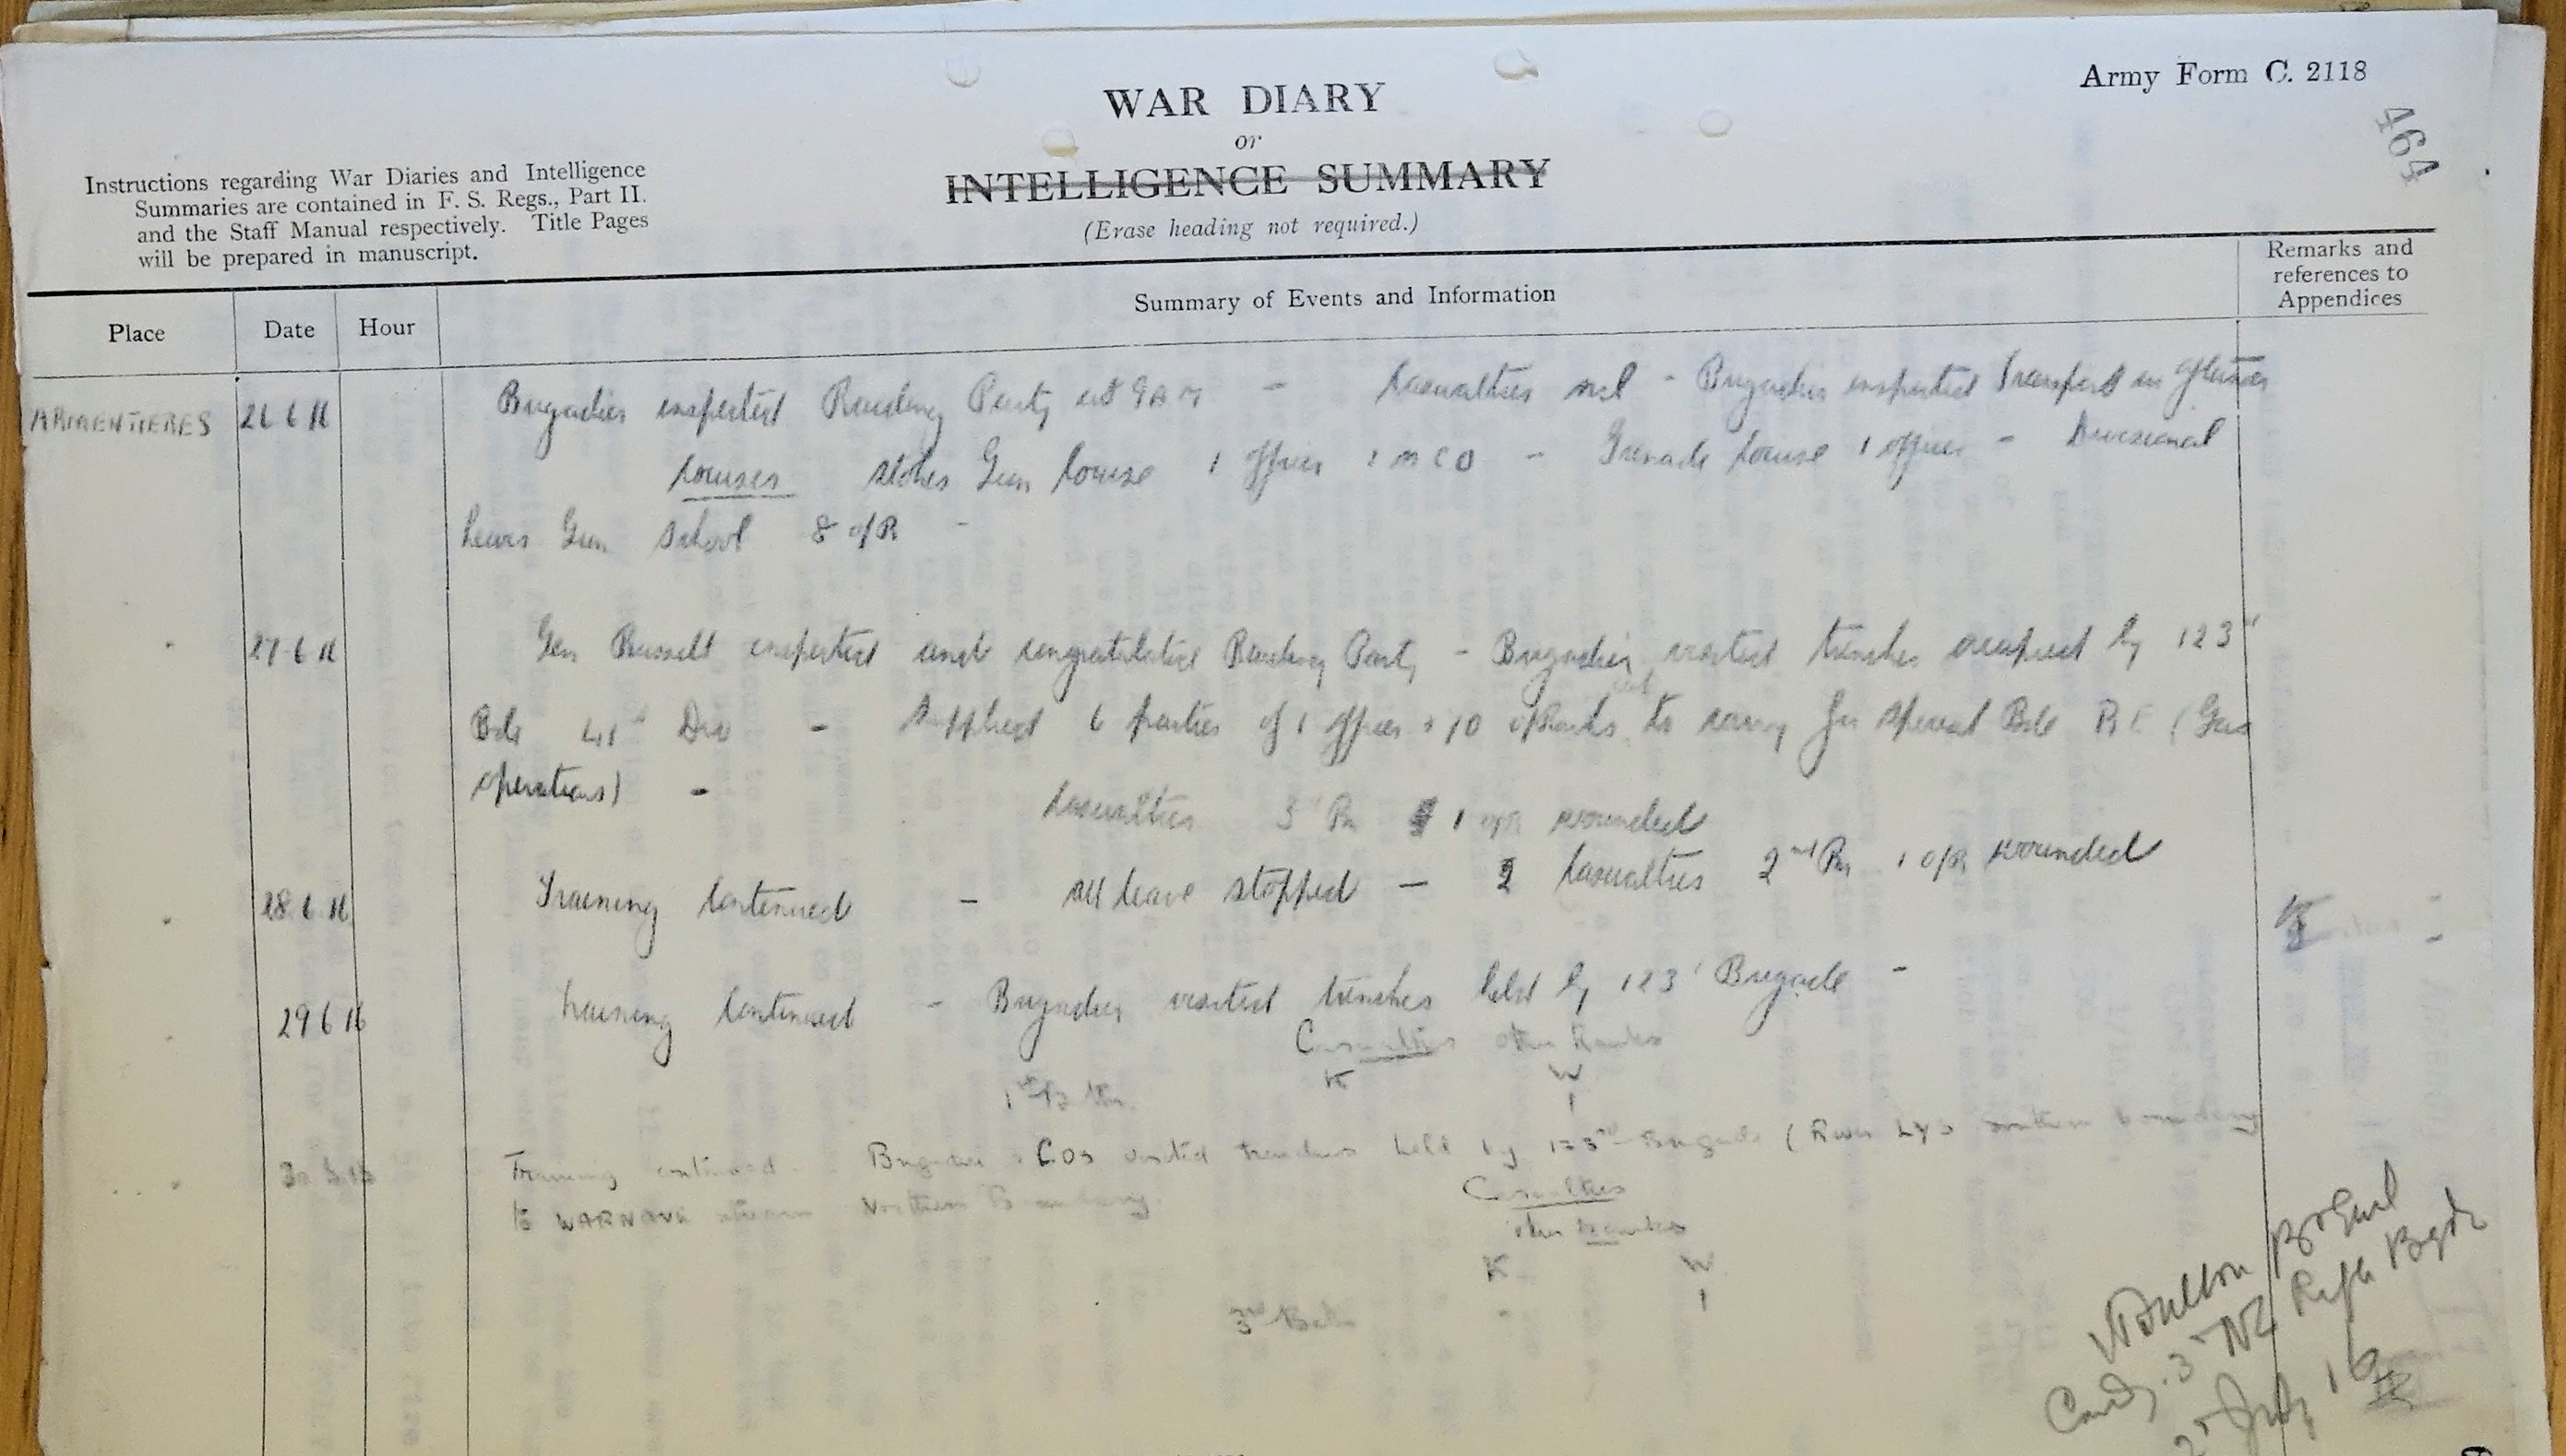 Army Form C. 2118
464
WAR DIARY
or
INTELLIGENCE SUMMARY
(Erase heading not required.)
Instructions regarding War Diaries and Intelligence
Summaries are contained in F. S. Regs., Part II.
and the Staff Manual respectively. Title Pages
will be prepared in manuscript.
Place Date Hour Summary of Events and Information Remarks and references to Appendices
ARMENTIERES 26 6 16 Brigadier inspected Raiding Party at 9 AM - Casualties nil - Brigadier inspected Transport in
Courses Stokes Gun Course 1 officer 1 NCO - Grenade Course 1 officer - Divisional
Lewis Gun School 8 o/R -
27 6 16 Gen Russell inspected and congratulated Raiding Party - Brigadier visited trenches occupied by 123rd
Bde 41st Div - Supplied 6 parties of 1 officer + 10 o/Ranks to carry for Special Bde R E (Gas
operations) - Casualties 3rd Bn 1 o/R wounded
28 6 16 Training Continued - All leave stopped - Casualties 2nd Bn 1 o/R wounded
29 6 16 Training Continued - Brigadier visited trenches held by 123rd Brigade -
Casualties other Ranks
K W
1st Bn 1
30 6 16 Training continued. Brigadier + COs visited trenches held by 123rd Brigade (River Lys southern boundary
to WARNAVE stream Northern Boundary.
Casualties
other Ranks
K W
3rd Batn - 1
Fulton Br Genl
Comdg. 3rd NZ Rifle Bgde
2nd July 16